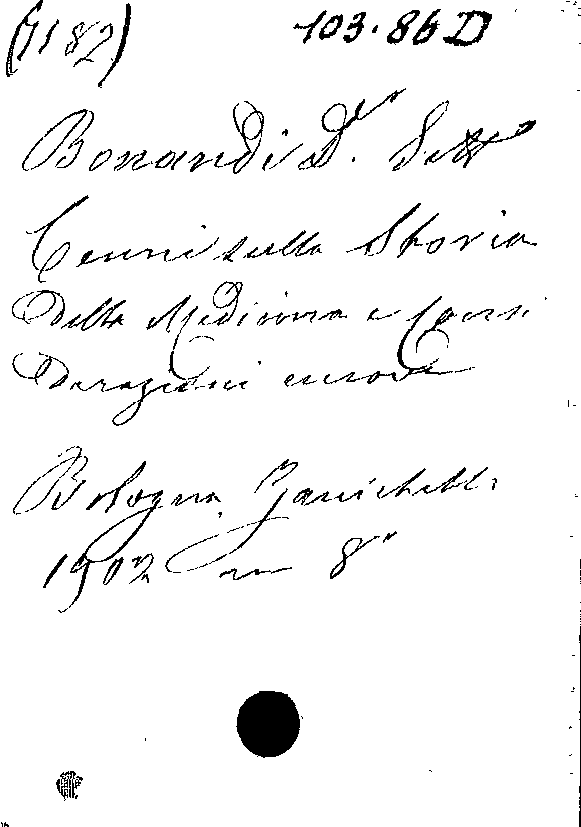 (7182) 103.86 D
Bonardi Dr.
Cenni sulla Storia
della Medicina e Consi
derazioni
Bologna, Zanichelli
1902 in 8°